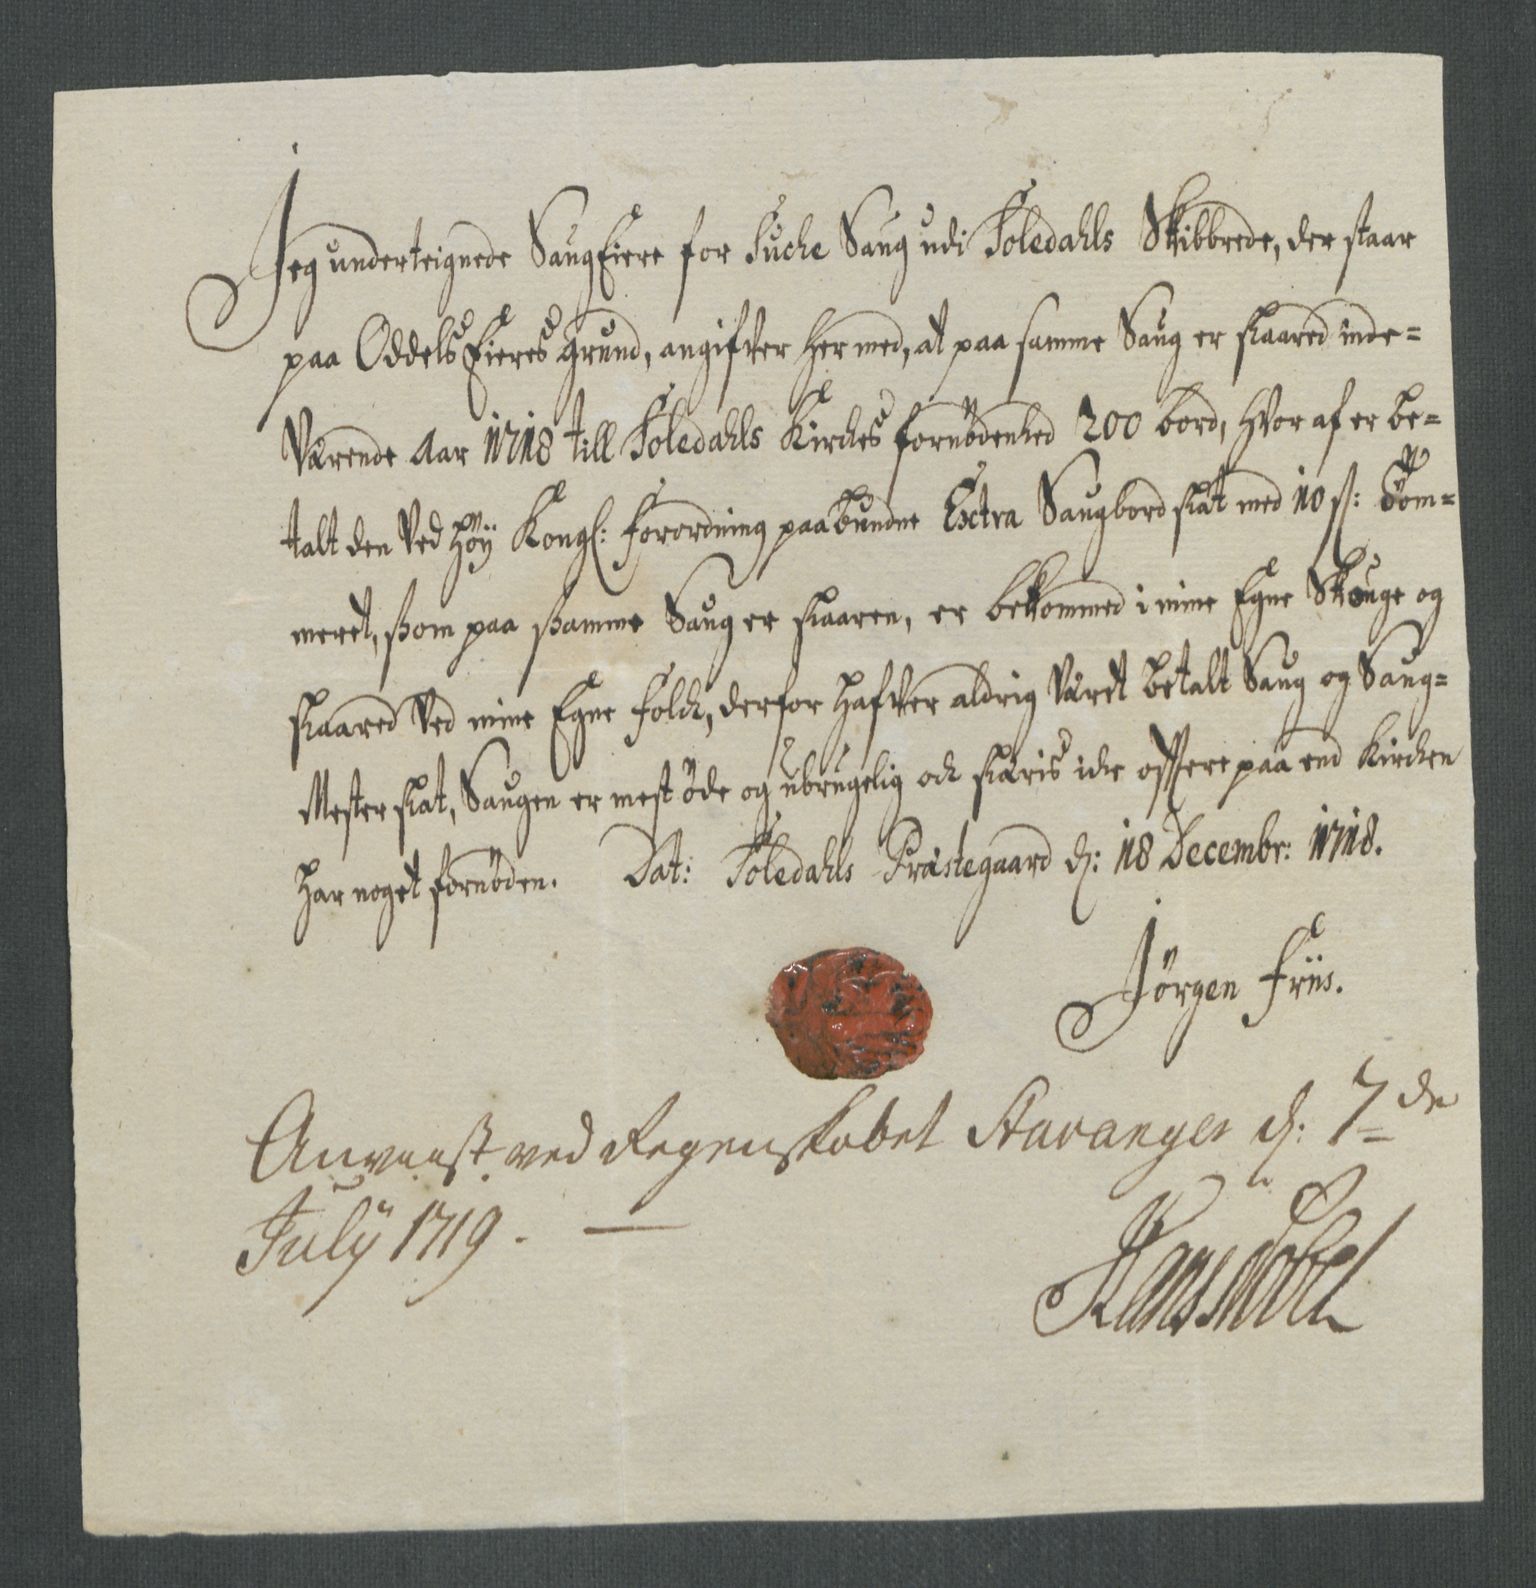 Jeg underteignede SaugEiere for Suche Saug udi Foledahls Skibbrede, der staar
paa Oddels Eieres grund, angifver her med, at paa samme Saug er skaared inde=
Værende Aar 1718 till Foledahls Kirches fornödenhed 200 bord, hvor af er be=
talt den ved höÿ Kongl: forordning paabundne Extra Saugbord skat med 10 s: Töm=
meret, som paa samme Saug er skaaren, er bekommed i mine Egne Skouge og
skaared ved mine Egne folch, derfor hafver aldrig været betalt Saug og Saug=
Mester skat, Saugen er mest öde og ubrugelig och skæris iche oftere paa end Kirchen
har noget fornöden. Dat: Foledahls Præstegaard d: 18 Decembr: 1718.
Jörgen Friis.
Anviist ved Regenskabet Stavanger d: 7de
Julÿ 1719. —
Hans Nobel